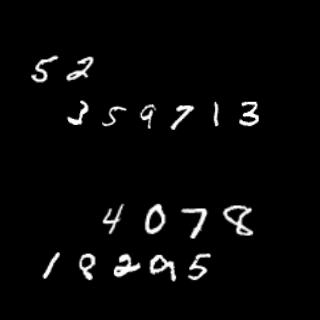 52
359713
4078
18295